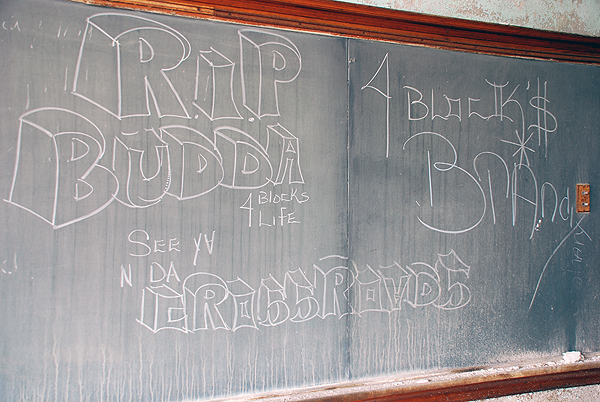 R.I.P
BUDDA
4 BLOCKS
LIFE
SEE YA
N DA
CROSSROADS
4 BLOCK'$